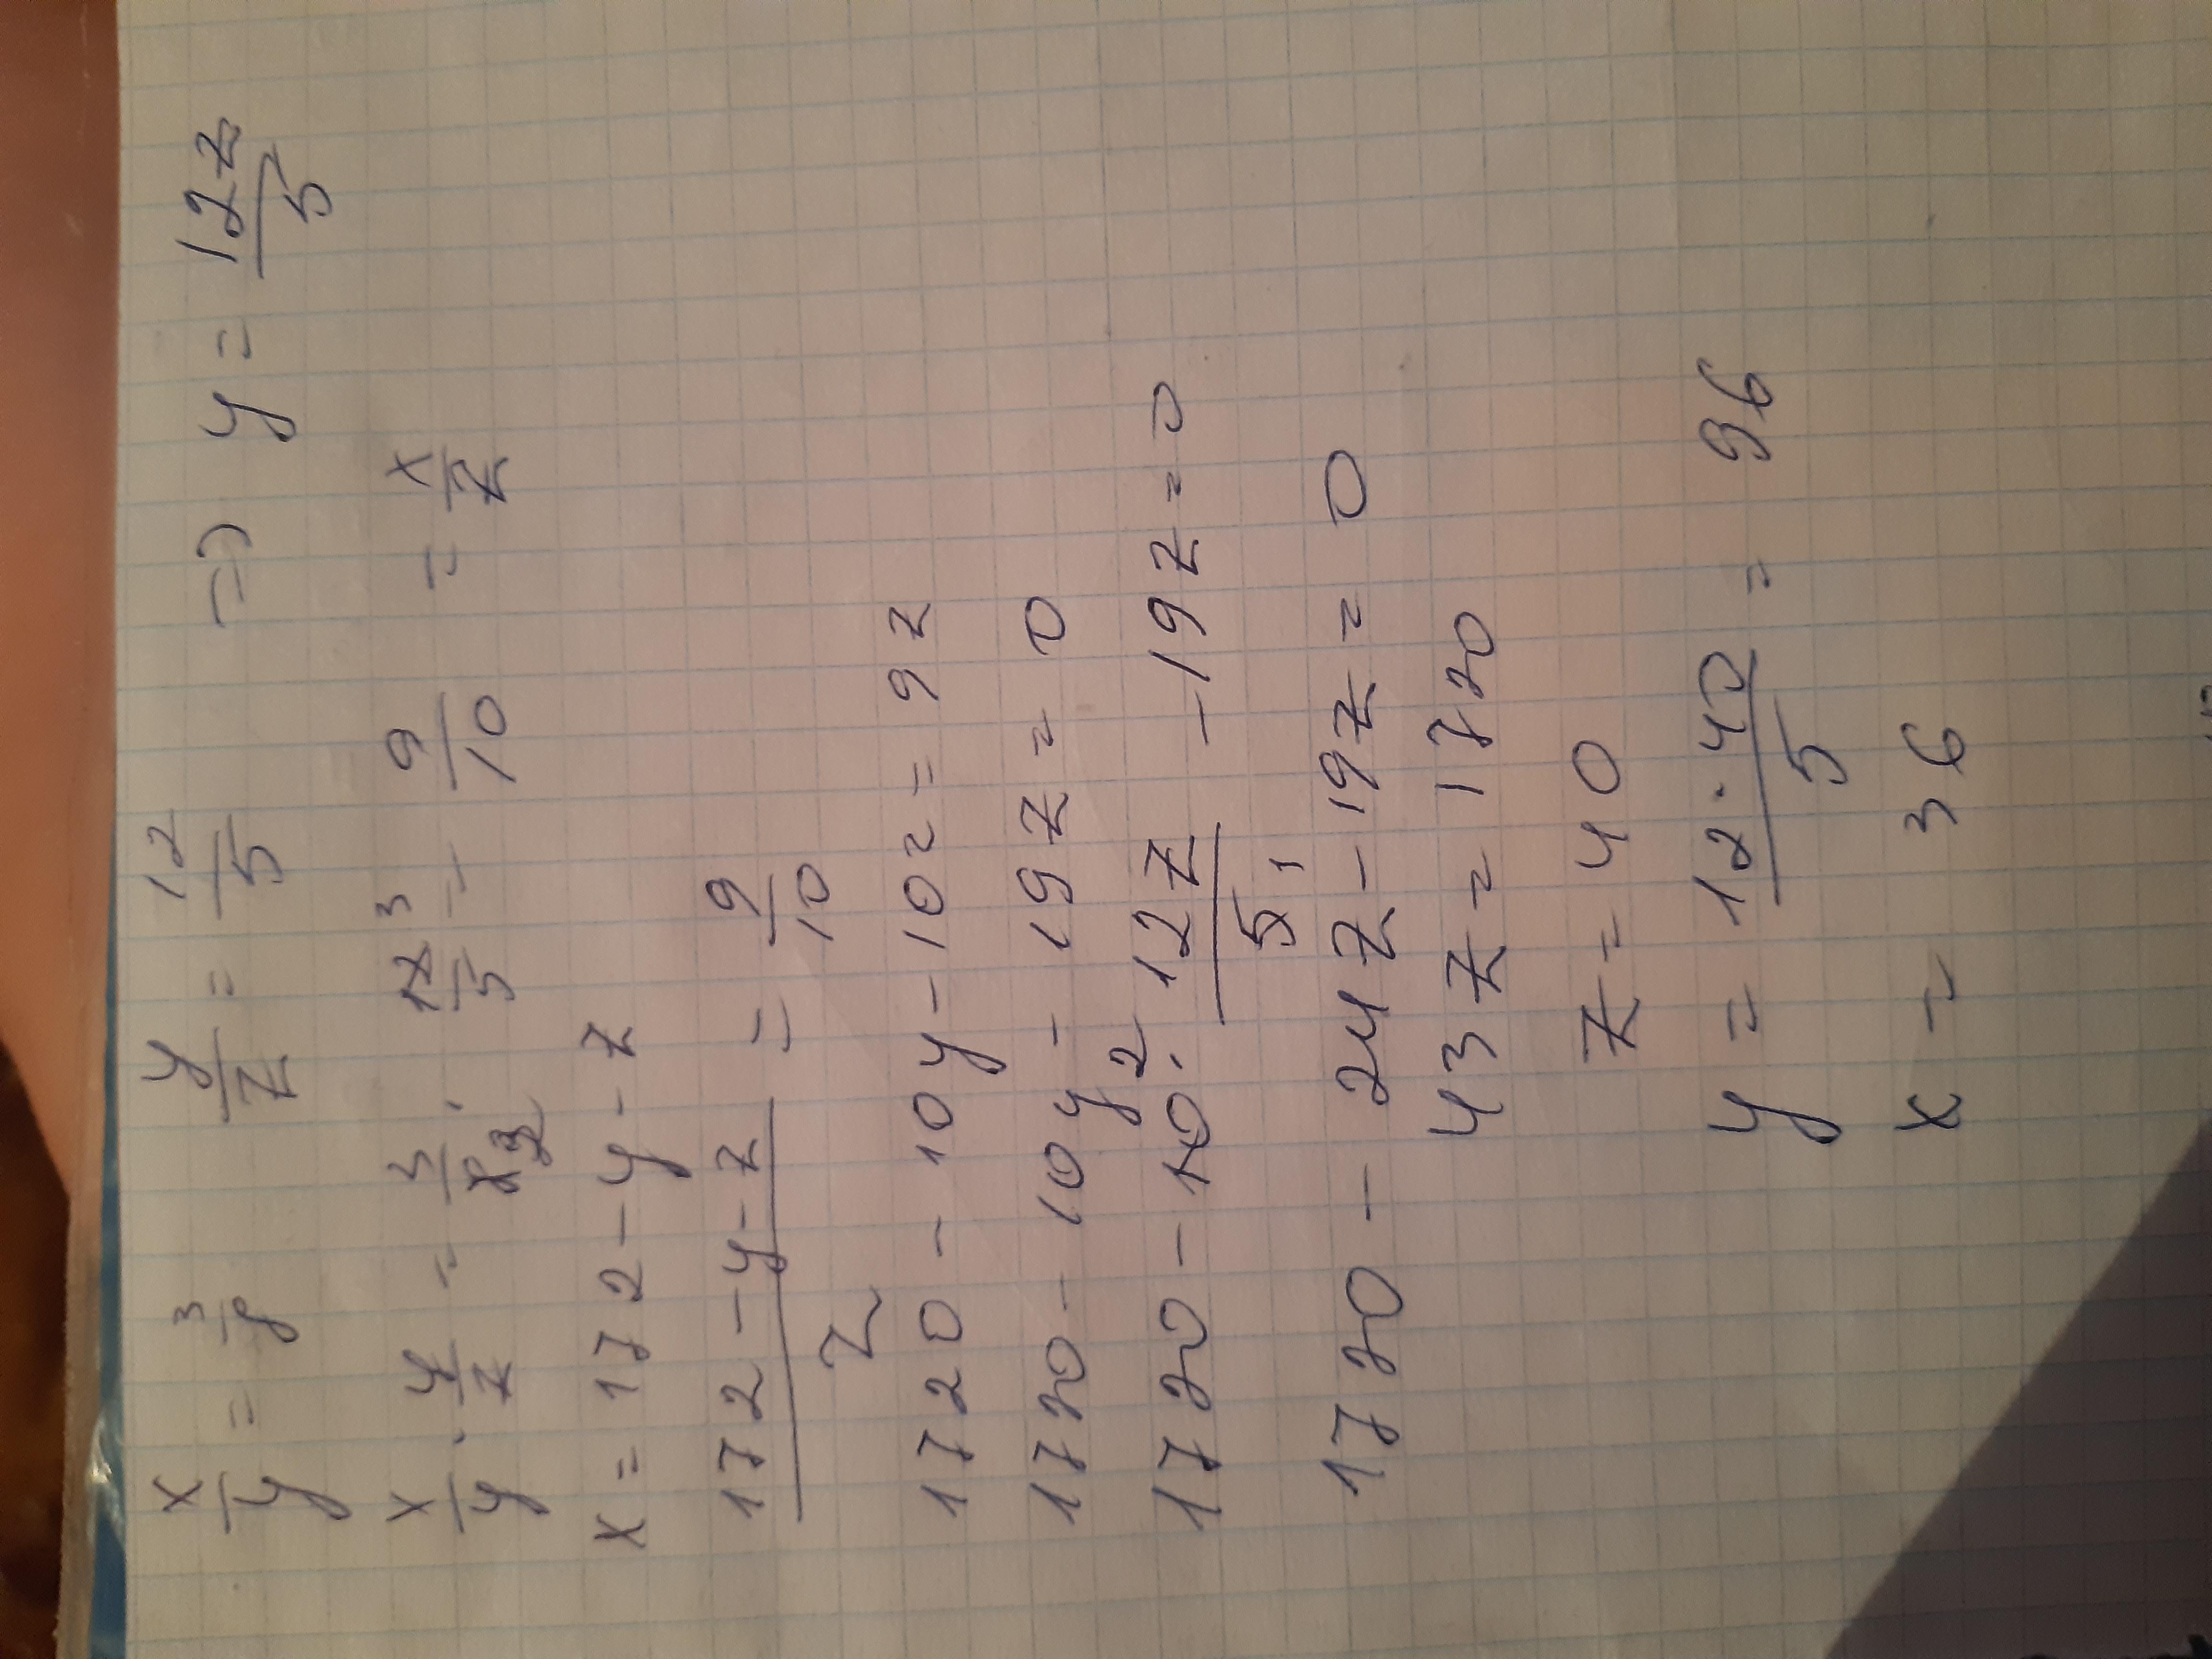 x/y = 3/8 y/z = 12/5 => y = 12z/5
x/y · y/z = 3/8 2 · 12 3/5 = 9/10 = x/z
x = 172 - y - z
172 - y - z / z = 9/10
1720 - 10y - 10z = 9z
1720 - 10y - 19z = 0
1720 - 10 2 · 12z/5 1 - 19z = 0
1720 - 24z - 19z = 0
43z = 1720
z = 40
y = 12 · 40/5 = 96
x = 36